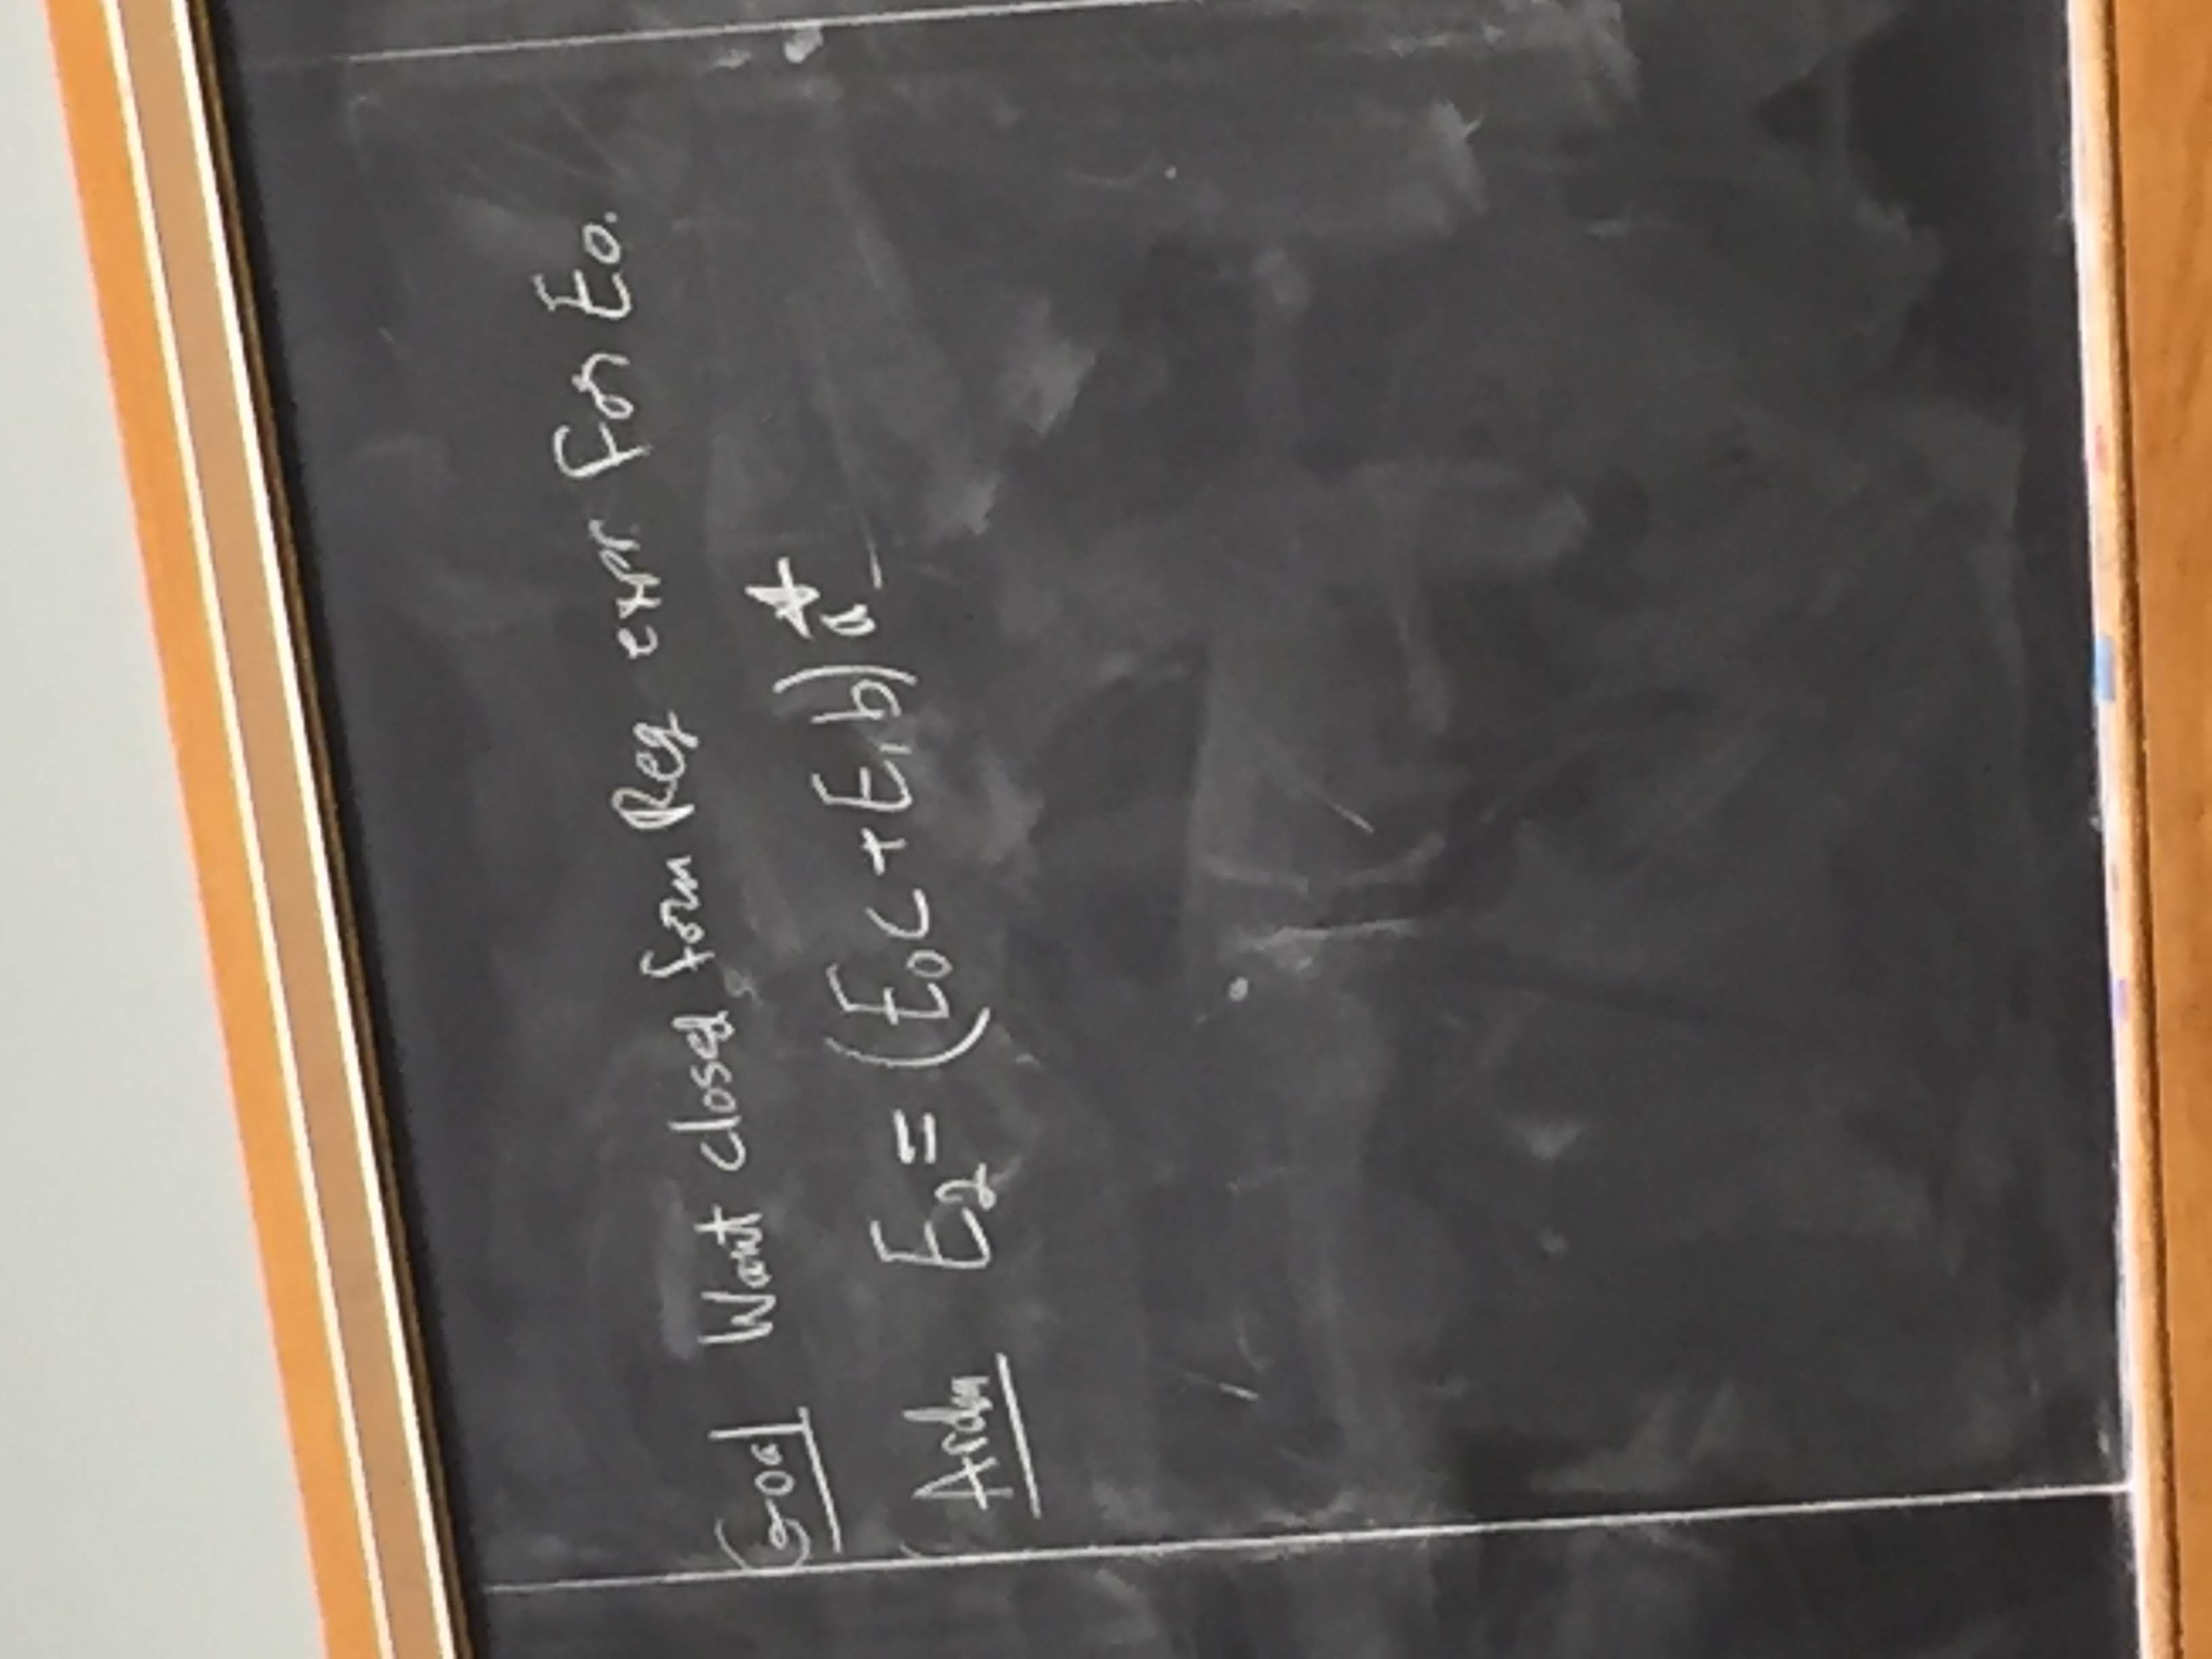 Goal Want closed form Reg expr. For E₀.
Arden E₂ = (E₀c + E₁b) a*